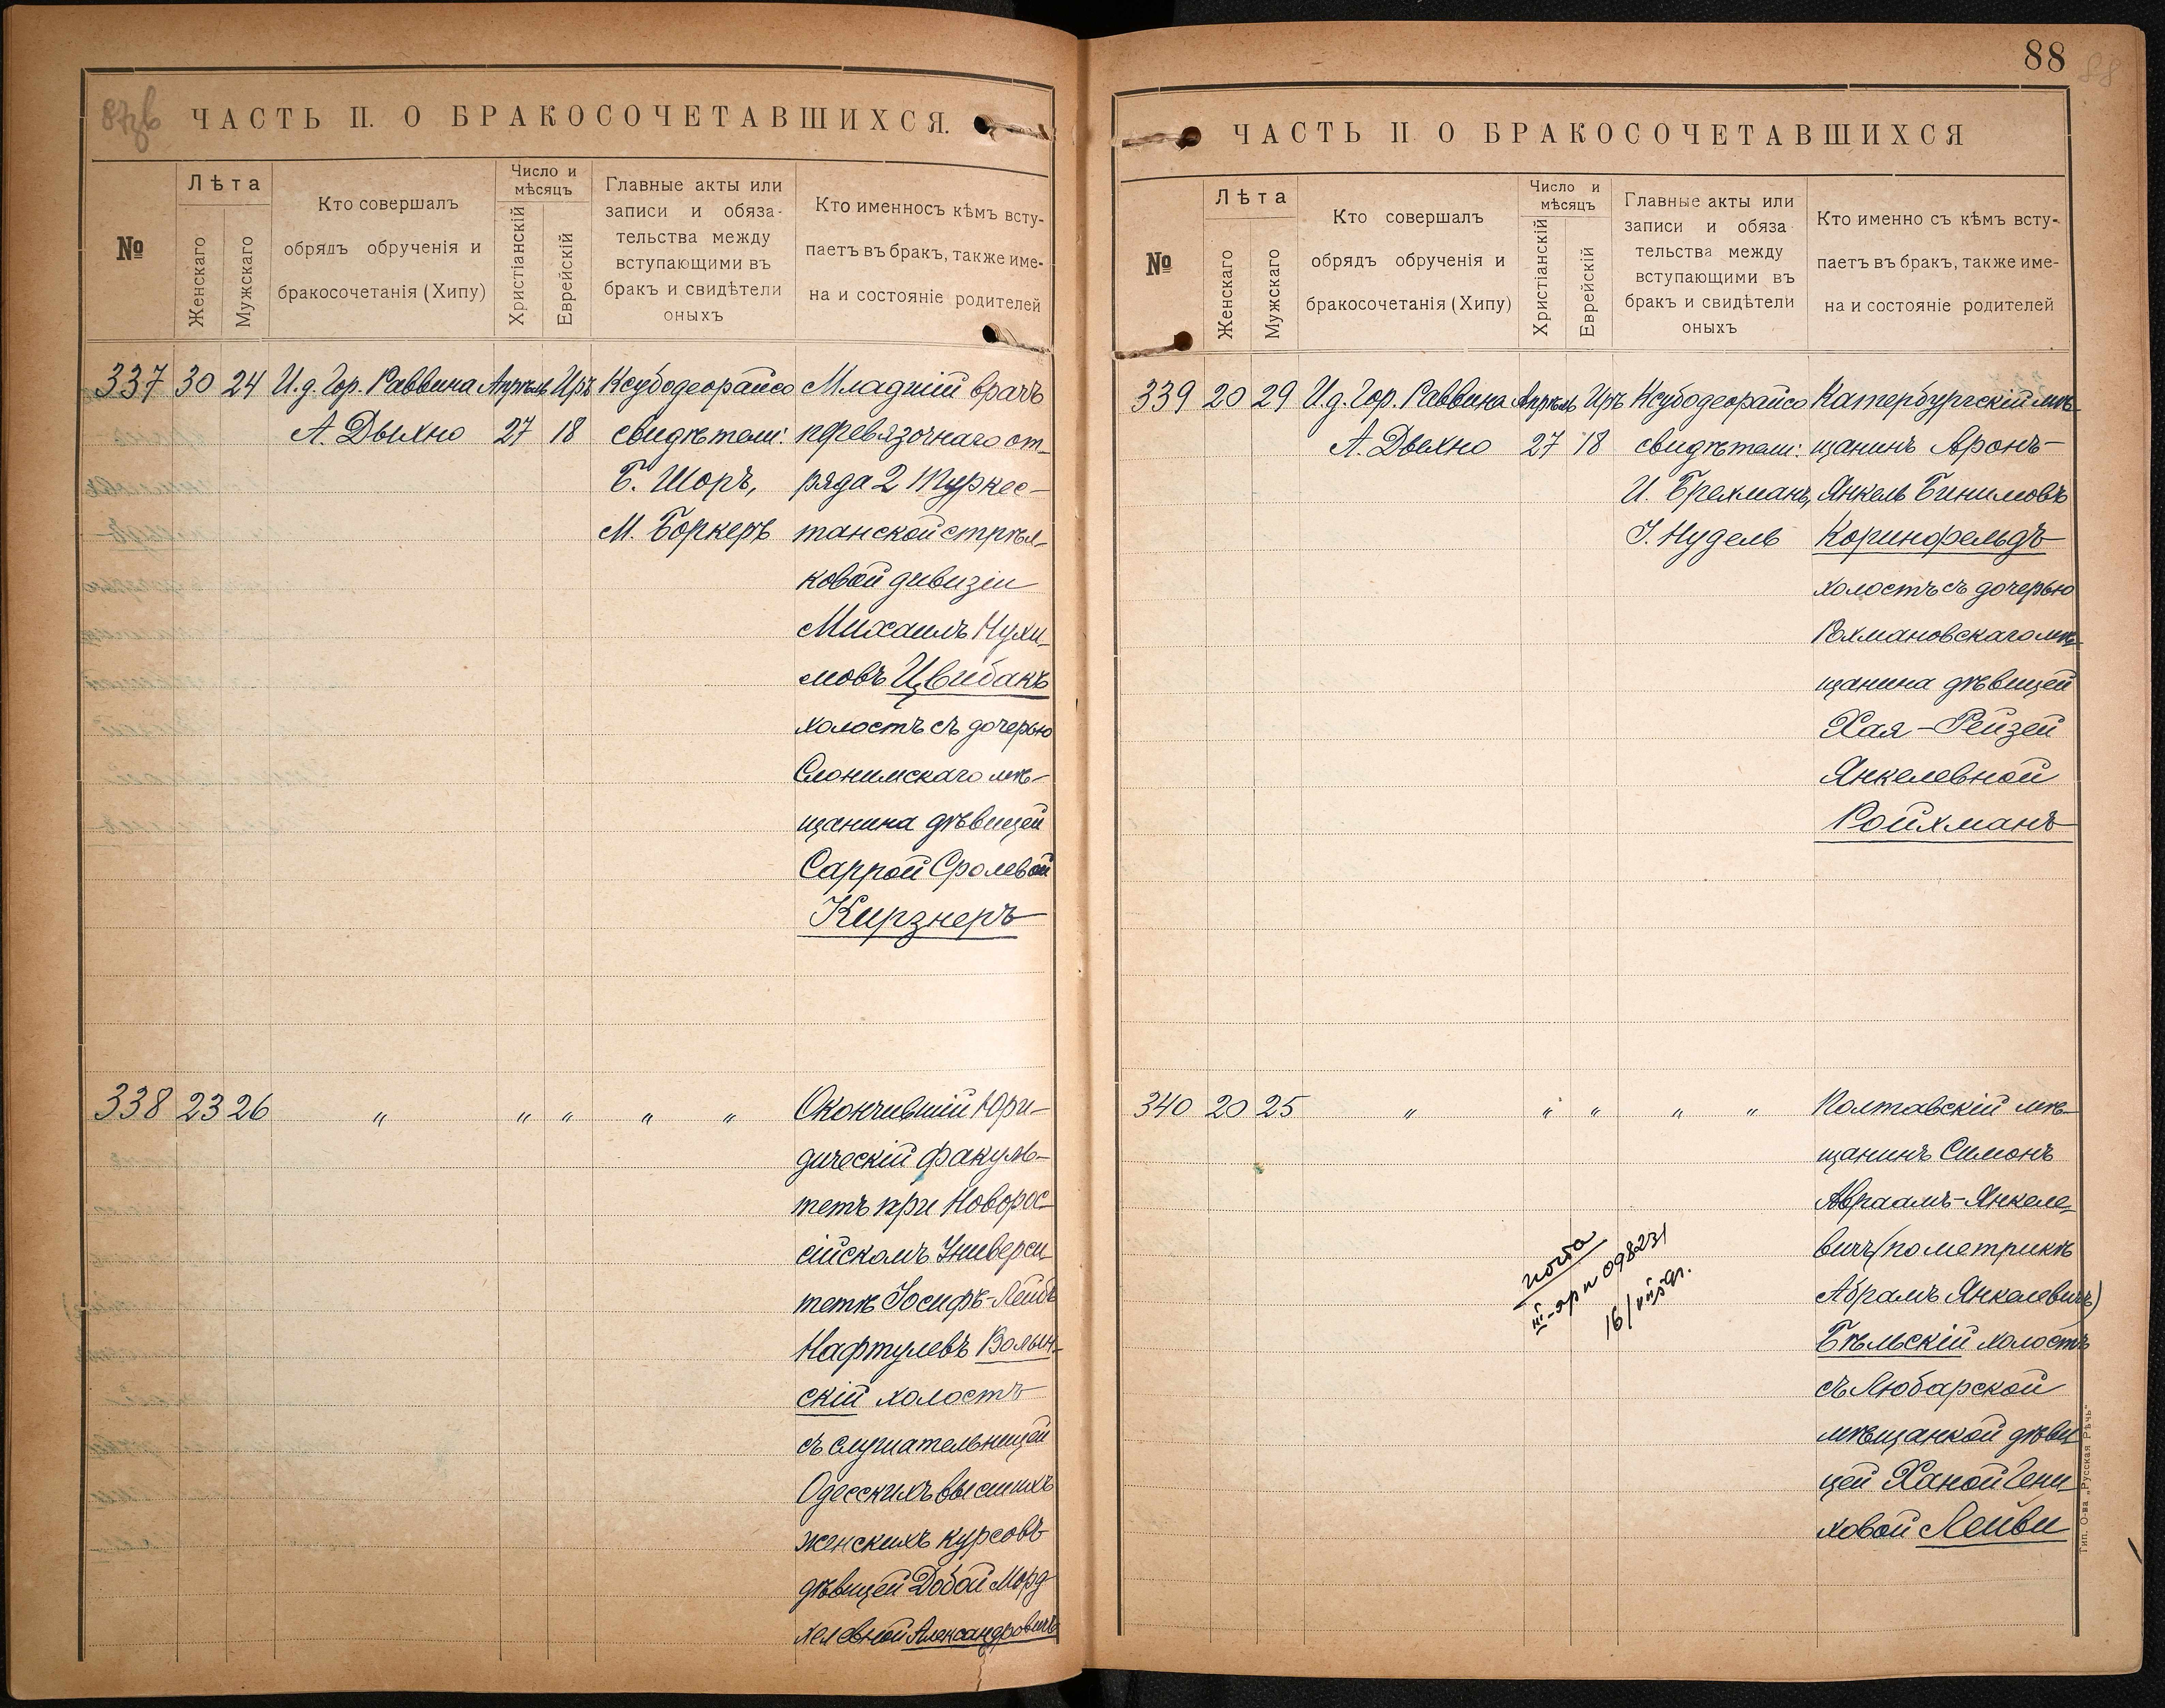 87об
ЧАСТЬ II. О БРАКОСОЧЕТАВШИХСЯ.
№
Лѣта
Женскаго
Мужскаго
Кто совершалъ
обрядъ обрученія и
бракосочетанія (Хипу)
Число и
мѣсяцъ
Христіанскій
Еврейскій
Главные акты или
записи и обяза-
тельства между
вступающими въ
бракъ и свидѣтели
оныхъ
Кто именносъ кѣмъ всту-
паетъ въ бракъ, также име-
на и состояніе родителей
337 30 24 И.д. Гор. Раввина Апрѣль Иръ Ксубодеорайсо Младшій врачъ
А. Дыхно 27 18 свидѣтели: перевязочнаго от-
Б. Шоръ, ряда 2 Туркес-
М. Боркеръ танской стрѣл-
ковой дивизіи
Михаилъ Нухи-
мовъ Цвибакъ
холостъ съ дочерью
Слонимскаго мѣ-
щанина дѣвицей
Саррой Сролевой
Кирзнеръ
338 23 26 " " " " " Окончившій Юри-
дическій факуль-
тетъ при Новорос-
сійскомъ Универси-
тетѣ Іосифъ-Лейбъ
Нафтулевъ Волын-
скій холостъ
съ слушательницей
Одесскихъ высшихъ
женскихъ курсовъ
дѣвицей Добой Морд-
хелевной Александровичъ
88
88
ЧАСТЬ II О БРАКОСОЧЕТАВШИХСЯ
№
Лѣта
Женскаго
Мужскаго
Кто совершалъ
обрядъ обрученія и
бракосочетанія (Хипу)
Число и
мѣсяцъ
Христіанскій
Еврейскій
Главные акты или
записи и обяза
тельства между
вступающими въ
бракъ и свидѣтели
оныхъ
Кто именно съ кѣмъ всту-
паетъ въ бракъ, также име-
на и состояніе родителей
339 20 29 И.д. Гор. Раввина Апрѣль Иръ Ксубодеорайсо Катербургскій мѣ-
А. Дыхно 27 18 свидѣтели: щанинъ Аронъ-
И. Брехманъ, Янкель Бинимовъ
І. Нудель Коринфельдъ
холостъ съ дочерью
Рохмановскаго мѣ-
щанина дѣвицей
Хая-Рейзей
Янкелевной
Ройхманъ
340 20 25 " " " " " Полтавскій мѣ-
щанинъ Симонъ
Авраамъ-Янкеле-
вичъ (по метрикѣ
Абрамъ Янкелевичъ)
Бѣльскій холостъ
съ Любарской
мѣщанкой дѣви
цей Ханой Гени-
ховой Лейви
098231
Тип. О-ва „Русская Рѣчь"